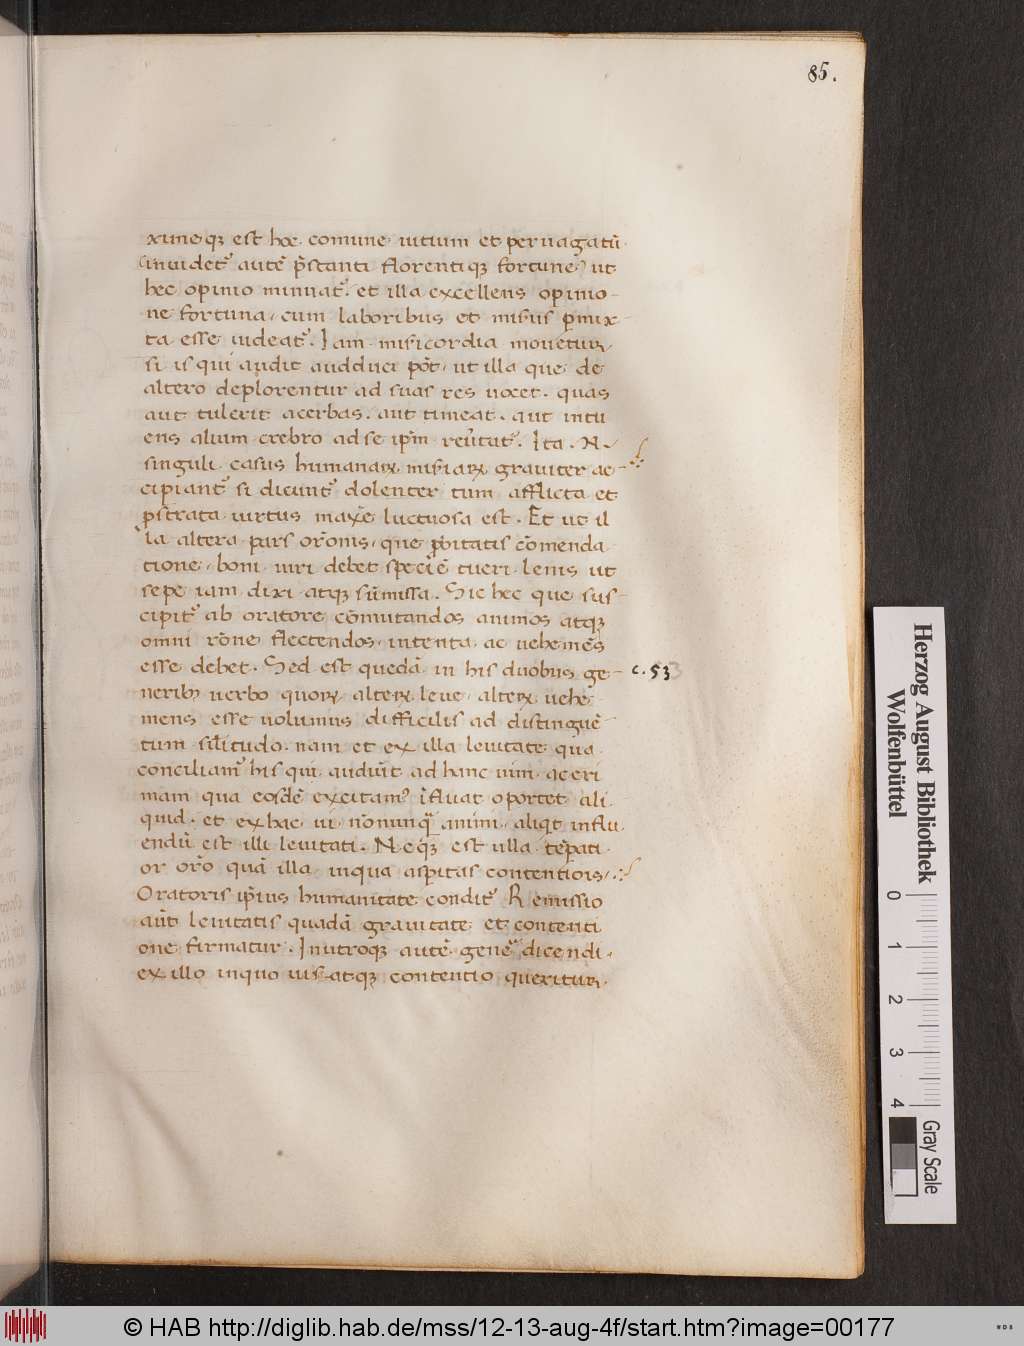 85.
ximeqꝫ est hoc comune uitium et peruagatū.
inuidet᷑ autē p̄stanti florentiqꝫ fortune, ut
hec opinio minuat᷑. et illa excellens opinio-
ne fortuna, cum laboribus et misiis p̱mix
ta esse uideat᷑. Iam misicordia mouetur,
si is qui audit adduci pōt, ut illa que de
altero deplorentur ad suas res uocet. quas
aut tulerit acerbas. aut timeat. aut intu
ens alium crebro ad se ip̄m reūtat᷑. Ita. N.
singuli casus humanaꝝ misiaꝝ grauiter ac-
cipiant᷑ si dicunt᷑ dolenter tum afflicta et
pstrata uirtus maxē luctuosa est. Et ut il
la altera pars orōnis, que pbitatis cōmenda
tione boni uiri debet speciē tueri lenis ut
sepe iam dixi atqꝫ sūmissa. Sic hec que sus-
cipit᷑ ab oratore cōmutandos animos atqꝫ
omni rōne flectendos intenta ac uehemēs
esse debet. Sed est quedā in his duobus ge-
c. 53
neribꝫ uerbo quoꝝ alteꝝ leue alteꝝ uehe-
mens esse uolumus difficilis ad distinguē-
tum sił̄itudo. nam et ex illa leuitate qua
conciliam᷑ his qui audiūt ad hanc uim aceri
mam qua eosdē excitam᷑ īfluat oportet ali
quid. et ex hac ui nōnunq̄ animi aliqd influ
endū est illi leuitati. Neqꝫ est ulla tēp̱ati
or orō quā illa inqua asp̱itas contentiōis,
Oratoris ip̄ius humanitate condit᷑ Remissio
aūt leuitatis quadā grauitate et contenti
one firmatur. Inutroqꝫ autē geneꝛ̄ dicendi
ex illo inquo uis atqꝫ contentio queritur,
Herzog August Bibliothek
Wolfenbüttel
0 1 2 3 4
Gray Scale
© HAB http://diglib.hab.de/mss/12-13-aug-4f/start.htm?image=00177